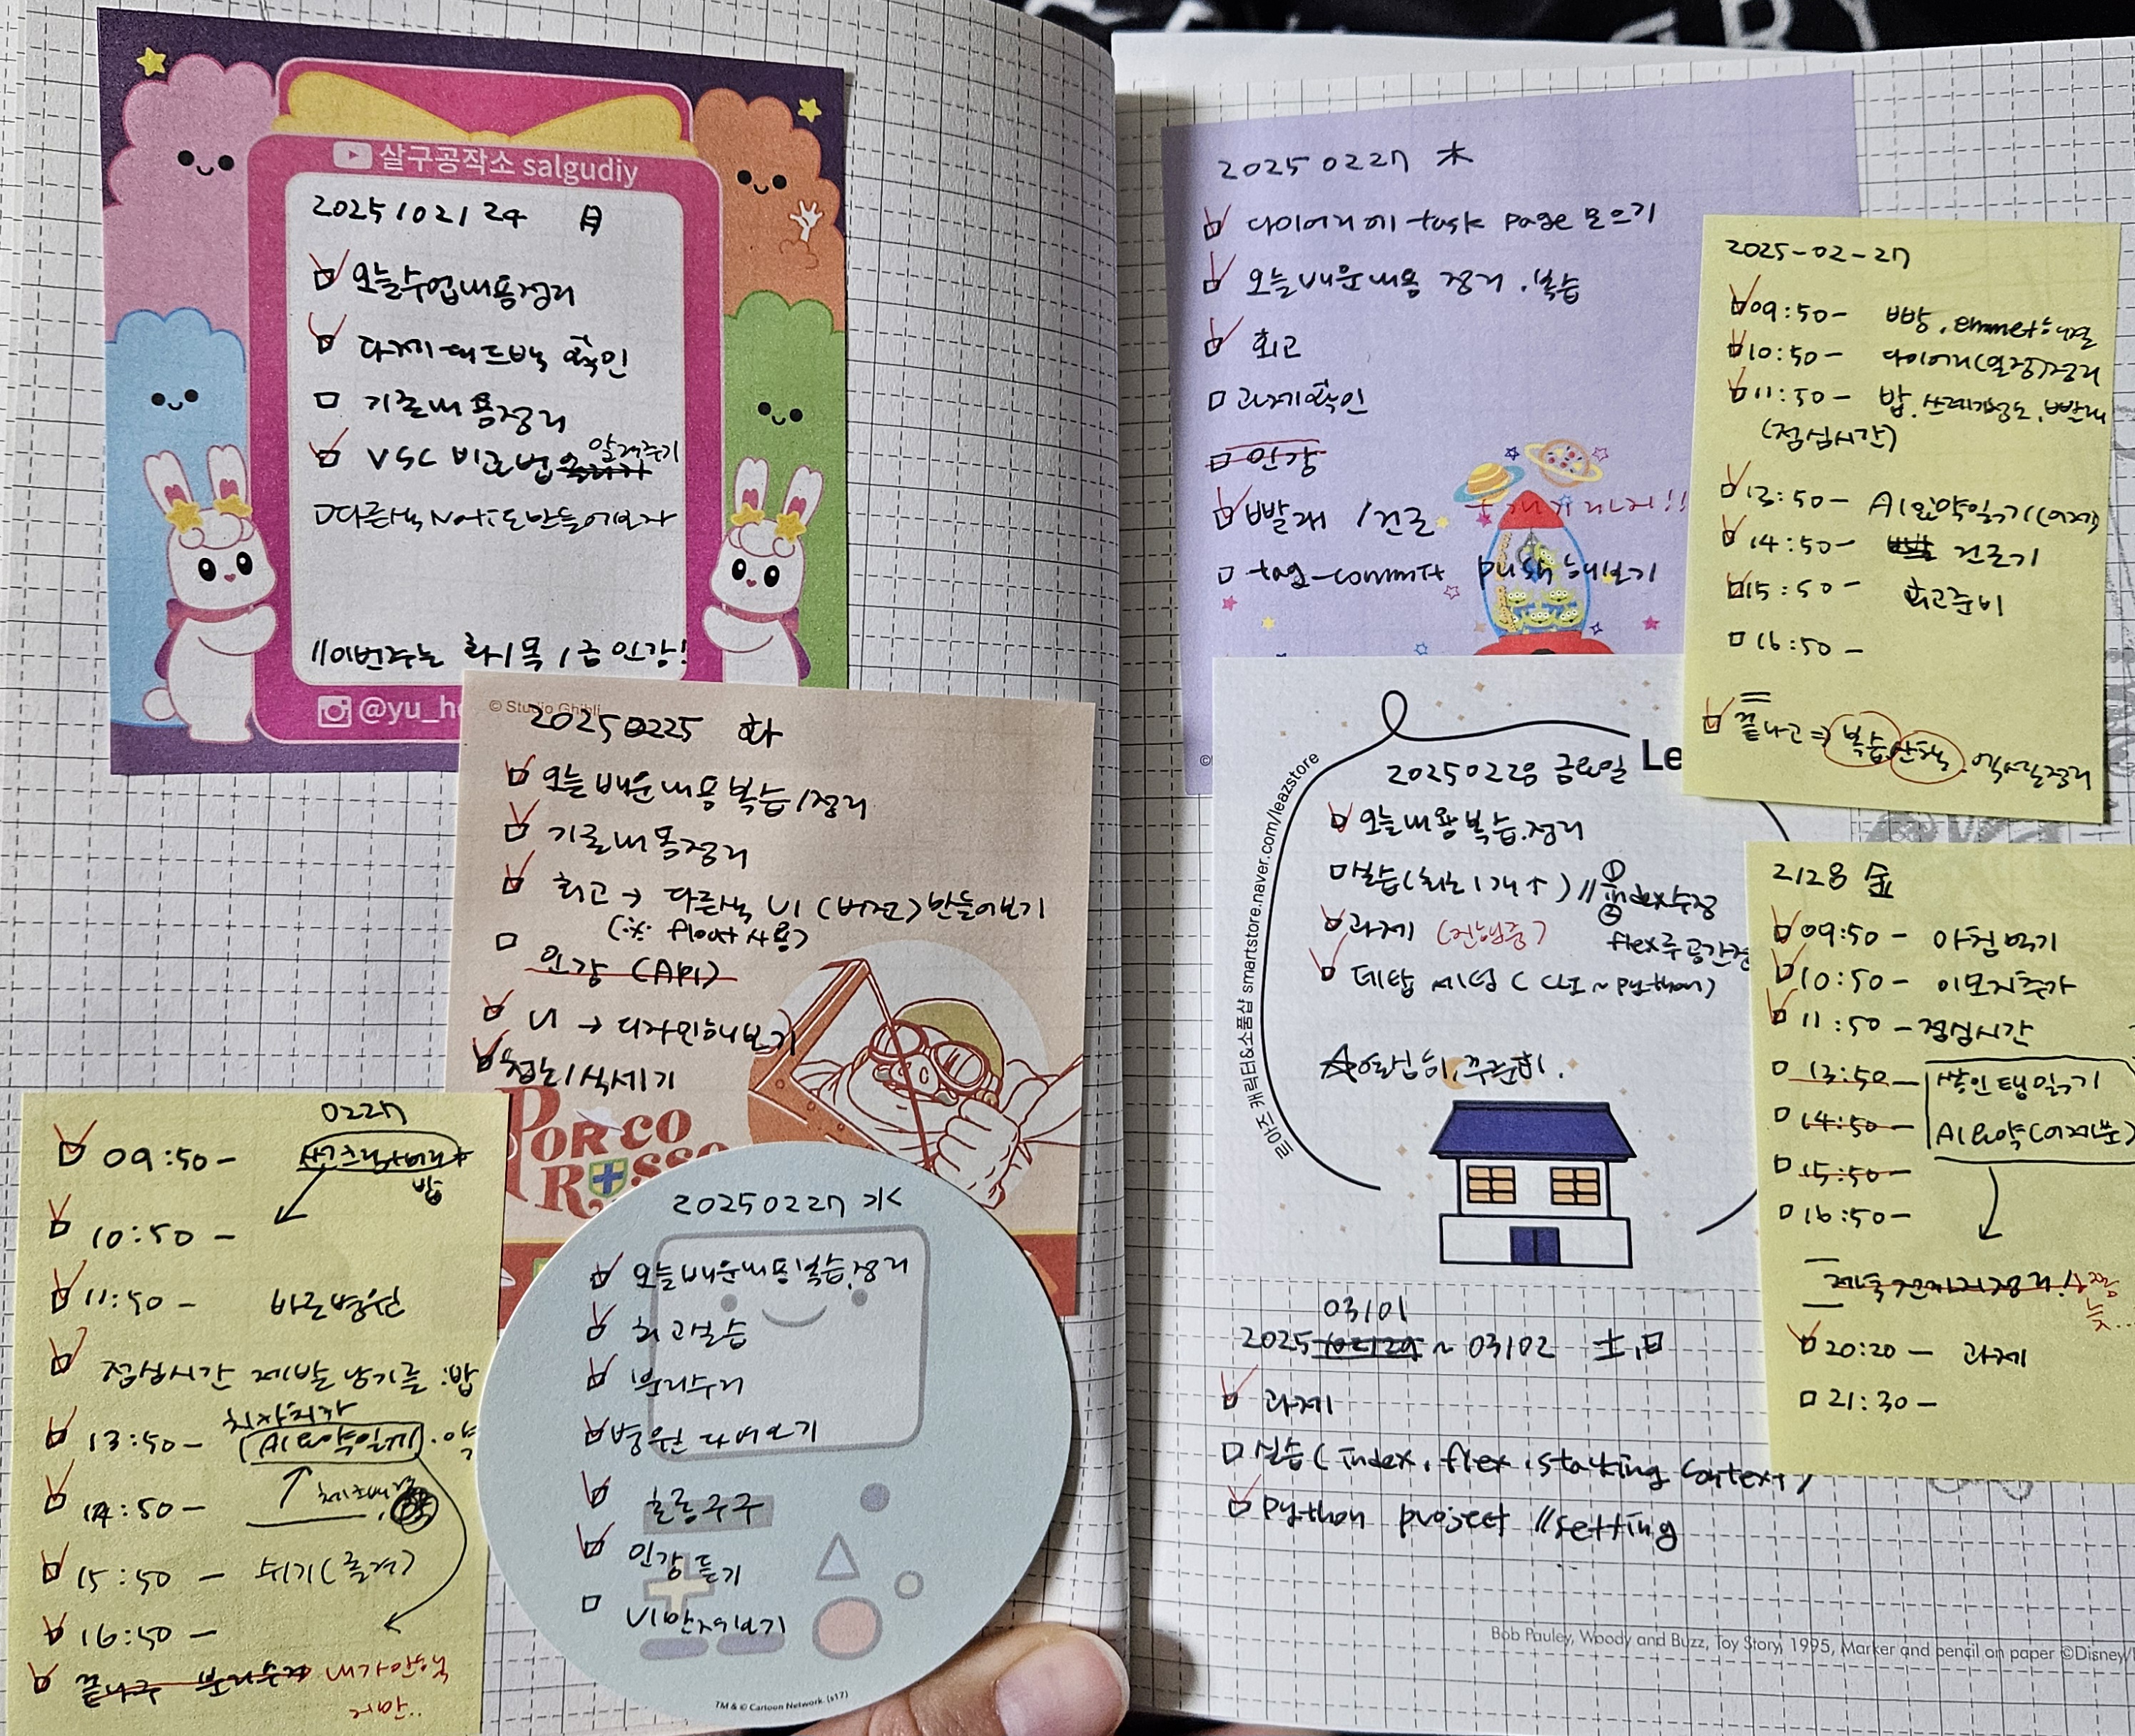 살구공작소 salgudiy
2025/02/24 月
오늘수업내용정리
과제피드백 확인
기존내용정리
VSC 비교법 알려주기
다른색 Noti도만들어보자
//이번주는 화/목/금 인강!
@yu_h
© Studio Ghibli
20250225 화
오늘배운내용복습/정리
기존내용정리
회고 → 다른색 UI (버전) 만들어보기
(※ float 사용)
인강 (API)
UI → 디자인해보기
청소/식세기
PORCO
ROSSO
0227
09:50-
밥
10:50-
11:50- 바로병원
점심시간 제발 남기를 :밥
13:50-
(AI요약일기)
14:50-
15:50 -
16:50-
끝나구 분리수거 내가안해도
20250227 水
오늘배운내용복습.정리
회고실습
분리수거
병원 다녀오기
인강 듣기
TM & © Cartoon Network. (s17)
20250227 木
다이어리에 task page 모으기
오늘배운내용 정리.복습
회고
과제확인
인강
빨래 /건조
tag-commit push해보기
2025-02-27
09:50- 빵, emmet
10:50- 다이어리(일정)정리
11:50- 밥, 빨래
(점심시간)
13:50- AI요약일기(어제)
14:50- 빨래 건조기
15:50- 회고준비
16:50-
끝나고⇒복습 산책.
Le
smartstore.naver.com/leazstore
캐릭터&소품샵
20250228 금요일
오늘내용복습.정리
실습(최소1개↑) //① index수정
② flex
과제 (진행중)
데탑 세팅 ( ~python)
☆열심히, 꾸준히.
2/28 金
09:50- 아침먹기
10:50- 이모지추가
11:50-점심시간
13:50-
14:50- AI요약(어제분)
15:50-
16:50-
20:20- 과제
21:30-
03/01
2025 02/29 ~ 03/02 土,日
과제
실습( index, flex, stacking context)
python project //setting
Bob Pauley, Woody and Buzz, Toy Story, 1995, Marker and pencil on paper ©Disney/